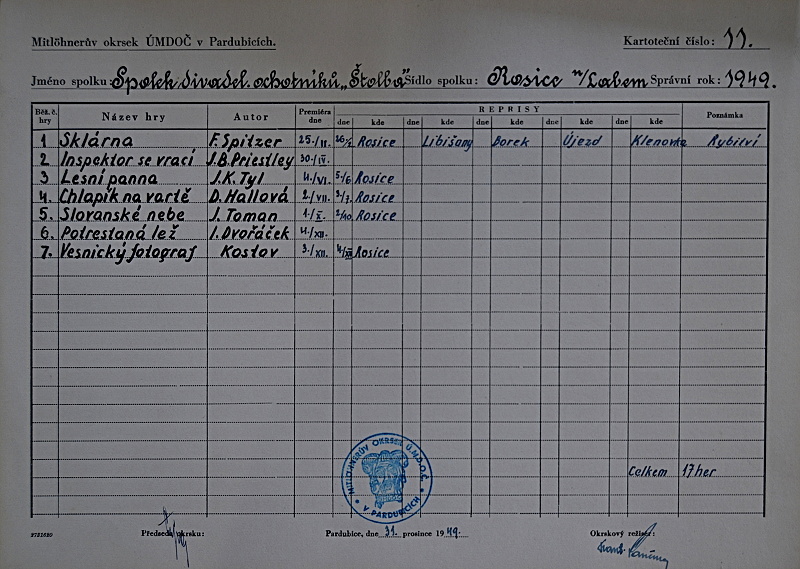 Mitlöhnerův okrsek ÚMDOČ v Pardubicích. Kartoteční číslo: 11.
Jméno spolku: Spolek divadel. ochotníků „Štolba" Sídlo spolku: Rosice n/Labem Správní rok: 1949.
Běž. č. hry Název hry Autor Premiéra dne REPRISY Poznámka
dne kde dne kde dne kde dne kde dne kde
1 Sklárna F. Spitzer 25./II. Rosice Libišany Borek Újezd Klenovka Rybitví
2 Inspektor se vrací J.B. Priestley 30./IV.
3 Lesní panna J.K. Tyl 4./VI. 5/6 Rosice
4. Chlapík na vartě D. Hallová 2./VII. 3/7. Rosice
5. Slovanské nebe J. Toman 1./X. 2/10 Rosice
6. Potrestaná lež I. Dvořáček 4./XII.
7. Vesnický fotograf Kostov 3./XII. 4/XII Rosice
Celkem 17 her
MITLÖHNERŮV OKRSEK Ú.M.D.O.Č. V PARDUBICÍCH
9731620 Předseda okrsku: Pardubice, dne 31. prosince 1949. Okrskový režisér: